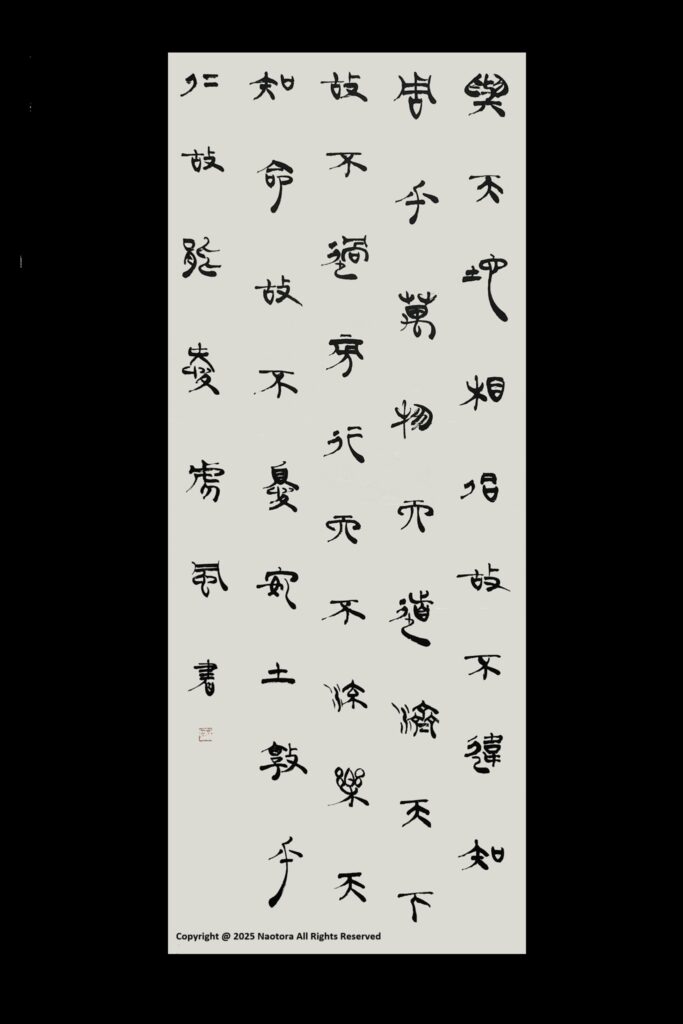 與天地相佀故不違知
周乎萬物而道濟天下
故不過旁行而不流樂天
知命故不憂安土敦乎
仁故能愛虎風書
Copyright @ 2025 Naotora All Rights Reserved